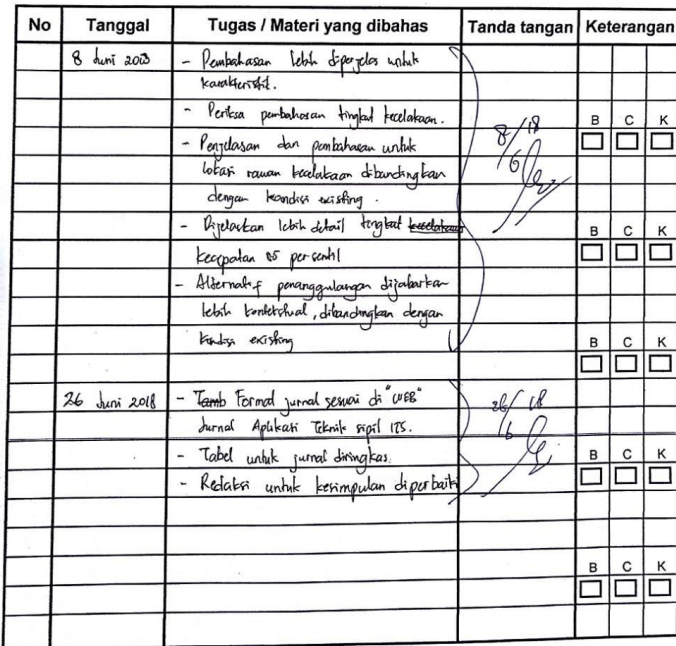 No Tanggal Tugas / Materi yang dibahas Tanda tangan Keterangan
8 Juni 2018 - Pembahasan lebih diperjelas untuk
karakteristik.
- Periksa pembahasan tingkat kecelakaan.
B C K
8/6 18
- Penjelasan dan pembahasan untuk
lokasi rawan kecelakaan dibandingkan
dengan kondisi existing.
- Dijelaskan lebih detail tingkat kecelakaan
B C K
kecepatan 85 persentil
- Alternatif penanggulangan dijabarkan
lebih kontekstual, dibandingkan dengan
kondisi existing
B C K
26 Juni 2018 - Tamb Format jurnal sesuai di "WEB"
26/6 18
Jurnal Aplikasi Teknik sipil ITS.
- Tabel untuk jurnal diringkas.
B C K
- Redaksi untuk kesimpulan diperbaiki
B C K